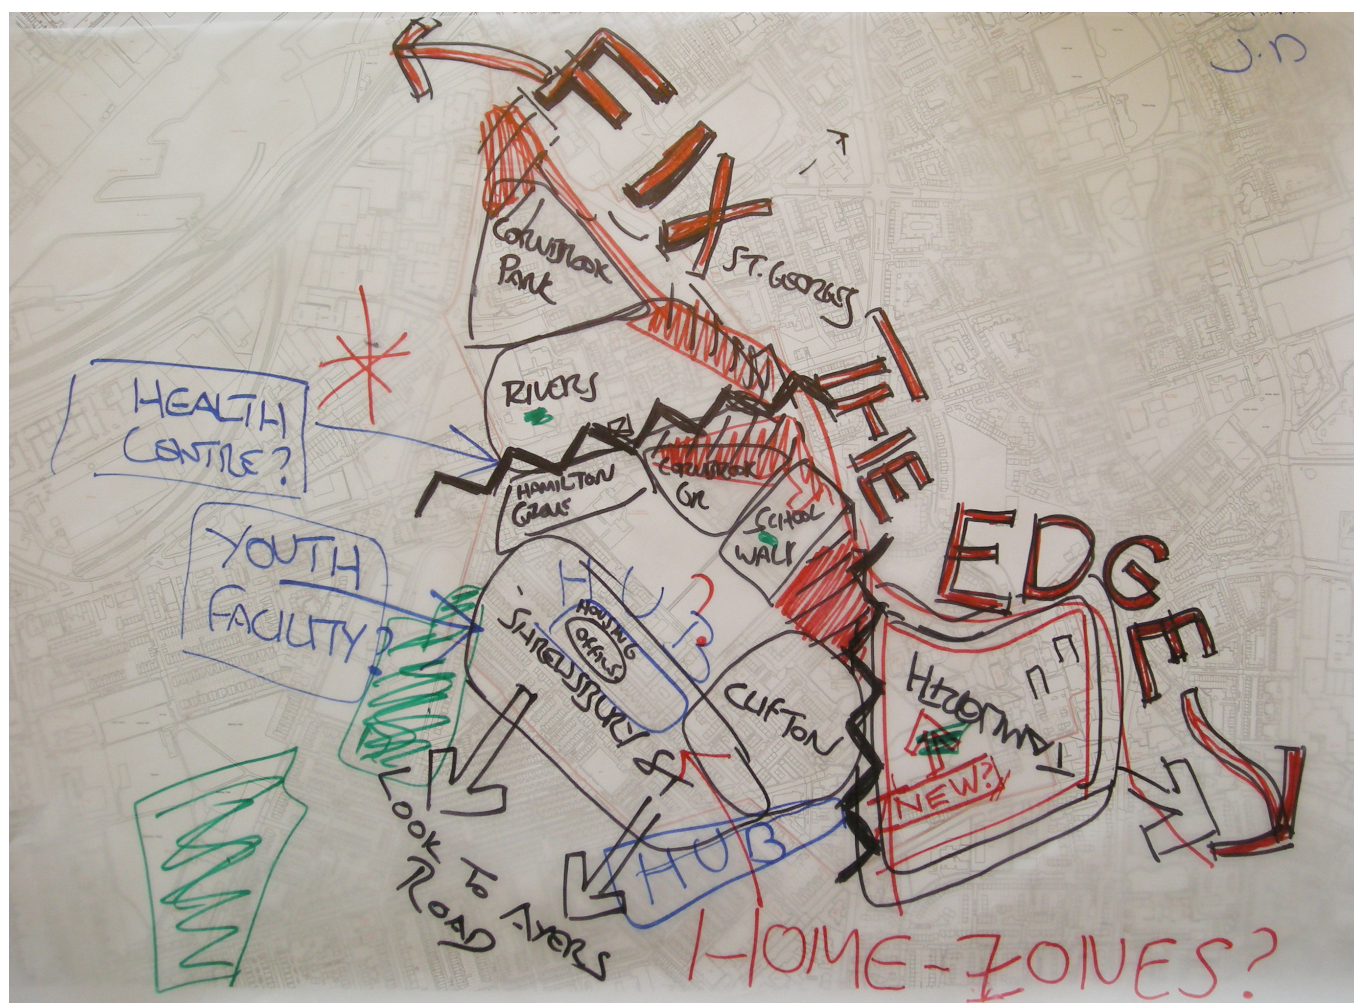 J.D
FIX
THE
EDGE
ST. GEORGES
CORNBROOK
PARK
RIVERS
HEALTH
CENTRE?
HAMILTON
GROVE
CORNBROOK
GR
SCHOOL
WALK
YOUTH
FACILITY?
HUB?
HOUSING
OFFICE
SHREWSBURY ST
CLIFTON
NEW?
HUB
LOOK TO AYERS
ROAD
HOME-ZONES?